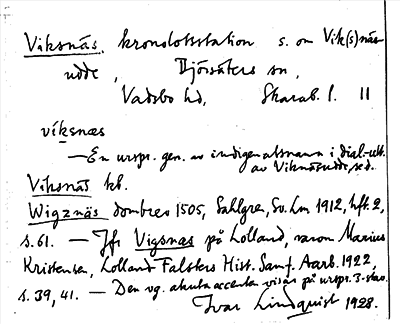 Viksnäs, kronolotsstation s. om Vik(s)näs
udde, Djörsäters sn,
Vadsbo hd, Skarab. l. 11
víksnæs
— En urspr. gen. av indigenatsnamn i dial.-utt.
av Viknäsudde, se d.
Viksnäs kb.
Wigznäs dombrev 1505, Sahlgren, Sv. Lm 1912, hft. 2,
s. 61. — Jfr Vigsnæs på Lolland, varom Marius
Kristensen, Lolland-Falsters Hist. Samf. Aarb. 1922,
s. 39, 41. — Den vg. akuta accenten visar på urspr. 3-stav.
Ivar Lindquist 1928.